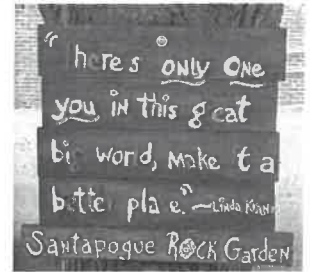 “ heres only one
you in this g eat
big world, make t a
bette pla e.” ~Linda
Santapogue Rock Garden